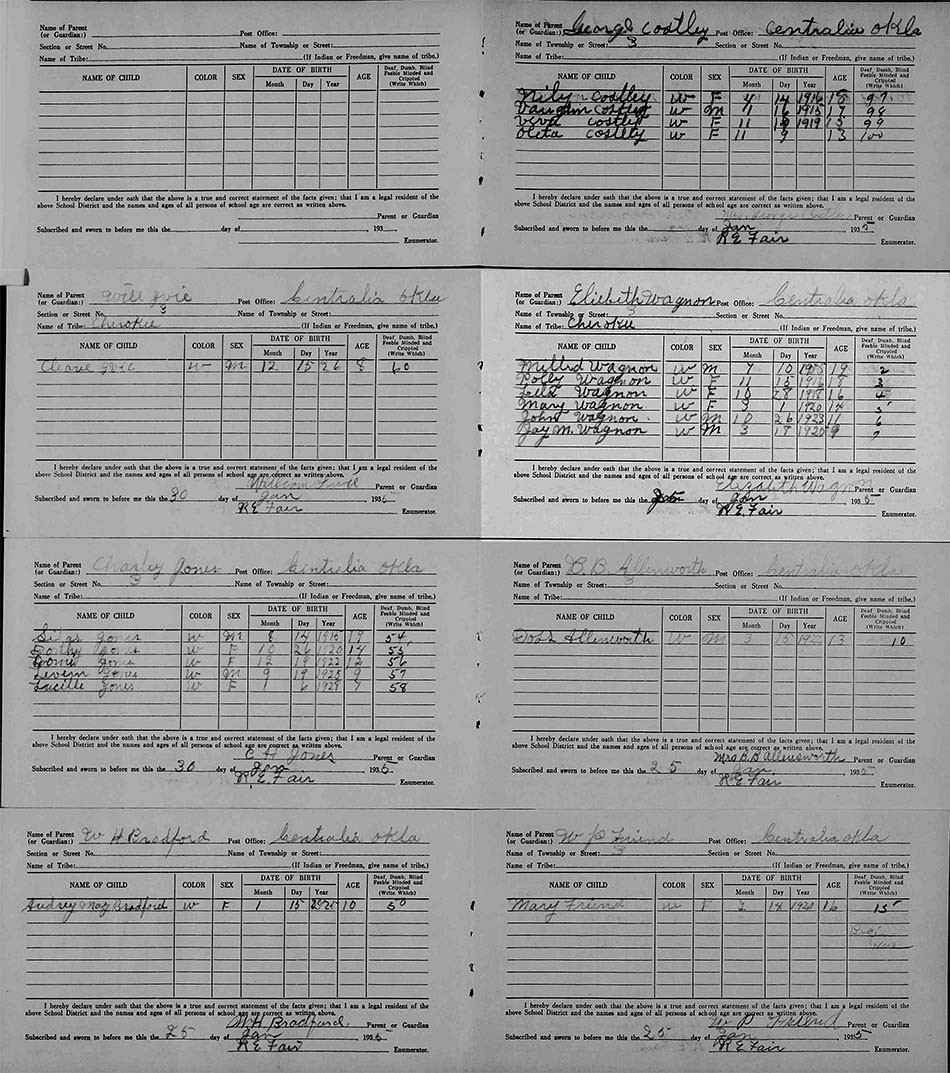 Name of Parent
(or Guardian:) Post Office:
Section or Street No. Name of Township or Street:
Name of Tribe: (If Indian or Freedman, give name of tribe.)
NAME OF CHILD COLOR SEX DATE OF BIRTH Month Day Year AGE Deaf, Dumb, Blind Feeble Minded and Crippled (Write Which)
I hereby declare under oath that the above is a true and correct statement of the facts given; that I am a legal resident of the
above School District and the names and ages of all persons of school age are correct as written above.
Parent or Guardian
Subscribed and sworn to before me this the day of 193
Enumerator.
Name of Parent
(or Guardian:) George Costley Post Office: Centralia Okla
Name of Township or Street: 3 Section or Street No.
Name of Tribe: (If Indian or Freedman, give name of tribe.)
NAME OF CHILD COLOR SEX DATE OF BIRTH Month Day Year AGE Deaf, Dumb, Blind Feeble Minded and Crippled (Write Which)
Costley W F 14 1916 18 97
Vaughn Costley W M 11 16 98
Costley W F 11 1919 15 99
Oleta Costley W F 11 9 13 100
I hereby declare under oath that the above is a true and correct statement of the facts given; that I am a legal resident of the
above School District and the names and ages of all persons of school age are correct as written above.
Mrs. George Costley Parent or Guardian
Subscribed and sworn to before me this the day of Jan 1935
R E Fair Enumerator.
Name of Parent
(or Guardian:) Will Ivie Post Office: Centralia Okla
Section or Street No. 3 Name of Township or Street:
Name of Tribe: Cherokee (If Indian or Freedman, give name of tribe.)
NAME OF CHILD COLOR SEX DATE OF BIRTH Month Day Year AGE Deaf, Dumb, Blind Feeble Minded and Crippled (Write Which)
Ivie W M 12 15 26 8 60
I hereby declare under oath that the above is a true and correct statement of the facts given; that I am a legal resident of the
above School District and the names and ages of all persons of school age are correct as written above.
William Ivie Parent or Guardian
Subscribed and sworn to before me this the 30 day of Jan 1935
R E Fair Enumerator.
Name of Parent
(or Guardian:) Eliebith Wagnon Post Office: Centralia Okla
Name of Township or Street: 3 Section or Street No.
Name of Tribe: Cherokee (If Indian or Freedman, give name of tribe.)
NAME OF CHILD COLOR SEX DATE OF BIRTH Month Day Year AGE Deaf, Dumb, Blind Feeble Minded and Crippled (Write Which)
Wagnon W M 7 10 19 2
Polly Wagnon W F 11 15 1916 18 3
Lela Wagnon W F 10 28 1918 16 4
Mary Wagnon W F 9 1 1920 14 5
John Wagnon W M 10 26 1923 11 6
Jay M. Wagnon W M 3 18 9 7
I hereby declare under oath that the above is a true and correct statement of the facts given; that I am a legal resident of the
above School District and the names and ages of all persons of school age are correct as written above.
Elizabith Wagnon Parent or Guardian
Subscribed and sworn to before me this the day of Jan 1935
R E Fair Enumerator.
Name of Parent
(or Guardian:) Charley Jones Post Office: Centralia Okla
Section or Street No. 3 Name of Township or Street:
Name of Tribe: (If Indian or Freedman, give name of tribe.)
NAME OF CHILD COLOR SEX DATE OF BIRTH Month Day Year AGE Deaf, Dumb, Blind Feeble Minded and Crippled (Write Which)
Jones W M 8 14 1915 19 54
Dorthy Jones W F 10 26 1920 14 55
Jones W F 12 19 1922 12 56
Levern Jones W M 9 19 1925 9 57
Lucille Jones W F 1 6 7 58
I hereby declare under oath that the above is a true and correct statement of the facts given; that I am a legal resident of the
above School District and the names and ages of all persons of school age are correct as written above.
C H Jones Parent or Guardian
Subscribed and sworn to before me this the 30 day of Jan 1935
R E. Fair Enumerator.
Name of Parent
(or Guardian:) B. B. Allensworth Post Office: Centralia Okla
Name of Township or Street: 3 Section or Street No.
Name of Tribe: (If Indian or Freedman, give name of tribe.)
NAME OF CHILD COLOR SEX DATE OF BIRTH Month Day Year AGE Deaf, Dumb, Blind Feeble Minded and Crippled (Write Which)
Allensworth W M 3 13 10
I hereby declare under oath that the above is a true and correct statement of the facts given; that I am a legal resident of the
above School District and the names and ages of all persons of school age are correct as written above.
Mrs B. B Allensworth Parent or Guardian
Subscribed and sworn to before me this the 25 day of Jan. 1935
R E Fair Enumerator.
Name of Parent
(or Guardian:) W H Bradford Post Office: Centralia Okla
Section or Street No. Name of Township or Street:
Name of Tribe: (If Indian or Freedman, give name of tribe.)
NAME OF CHILD COLOR SEX DATE OF BIRTH Month Day Year AGE Deaf, Dumb, Blind Feeble Minded and Crippled (Write Which)
Audrey May Bradford W F 1 15 10 50
I hereby declare under oath that the above is a true and correct statement of the facts given; that I am a legal resident of the
above School District and the names and ages of all persons of school age are correct as written above.
W. H. Bradford Parent or Guardian
Subscribed and sworn to before me this the 25 day of Jan 1935
R E Fair Enumerator.
Name of Parent
(or Guardian:) W P Friend Post Office: Centralia Okla
Name of Township or Street: 3 Section or Street No.
Name of Tribe: (If Indian or Freedman, give name of tribe.)
NAME OF CHILD COLOR SEX DATE OF BIRTH Month Day Year AGE Deaf, Dumb, Blind Feeble Minded and Crippled (Write Which)
Mary Friend W F 2 14 16 15
I hereby declare under oath that the above is a true and correct statement of the facts given; that I am a legal resident of the
above School District and the names and ages of all persons of school age are correct as written above.
W P Friend Parent or Guardian
Subscribed and sworn to before me this the 25 day of Jan 1935
R E Fair Enumerator.